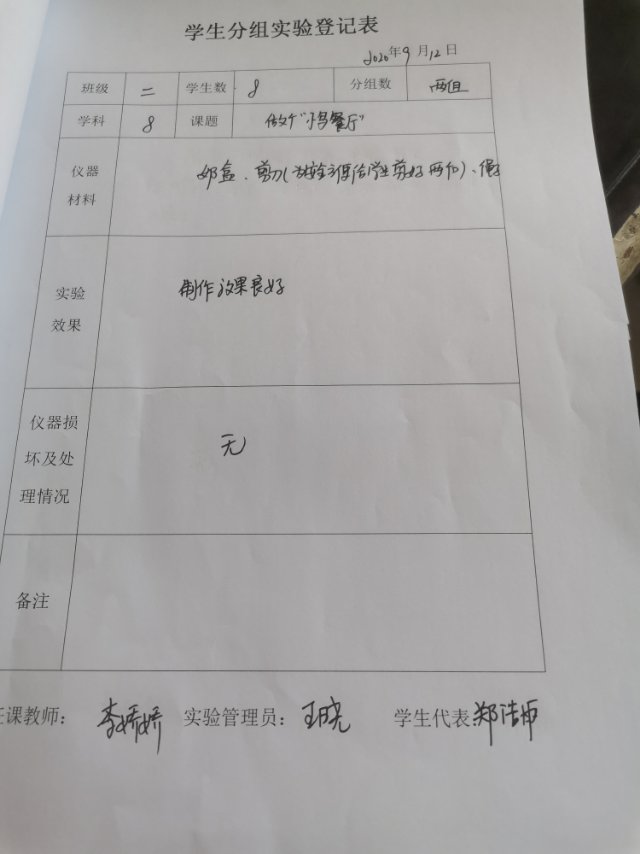 学生分组实验登记表
2020年9月12日
班级 二 学生数 8 分组数 两组
学科 8 课题 做个“小鸟餐厅”
仪器材料 奶盒、剪刀(
实验效果 制作效果良好
仪器损坏及处理情况 无
备注
任课教师： 李娇娇 实验管理员： 王晓 学生代表 郑